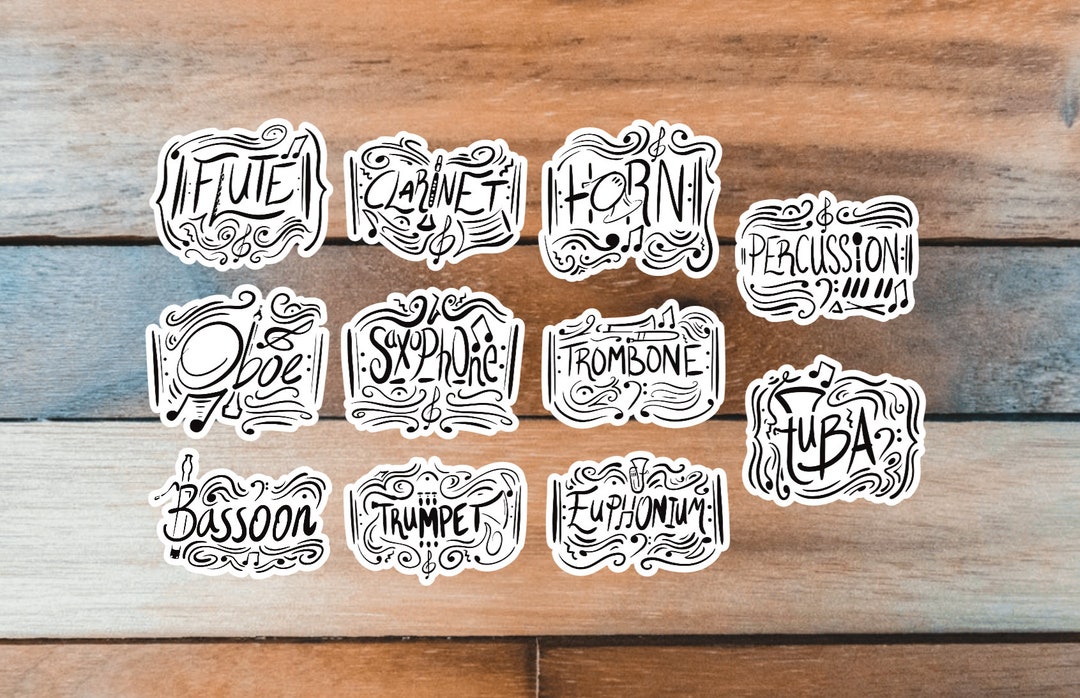 FLUTE
CLARINET
HORN
PERCUSSION
Oboe
SaxoPhOne
TROMBONE
tUBA
Bassoon
TRUMPET
EUPHONIUM